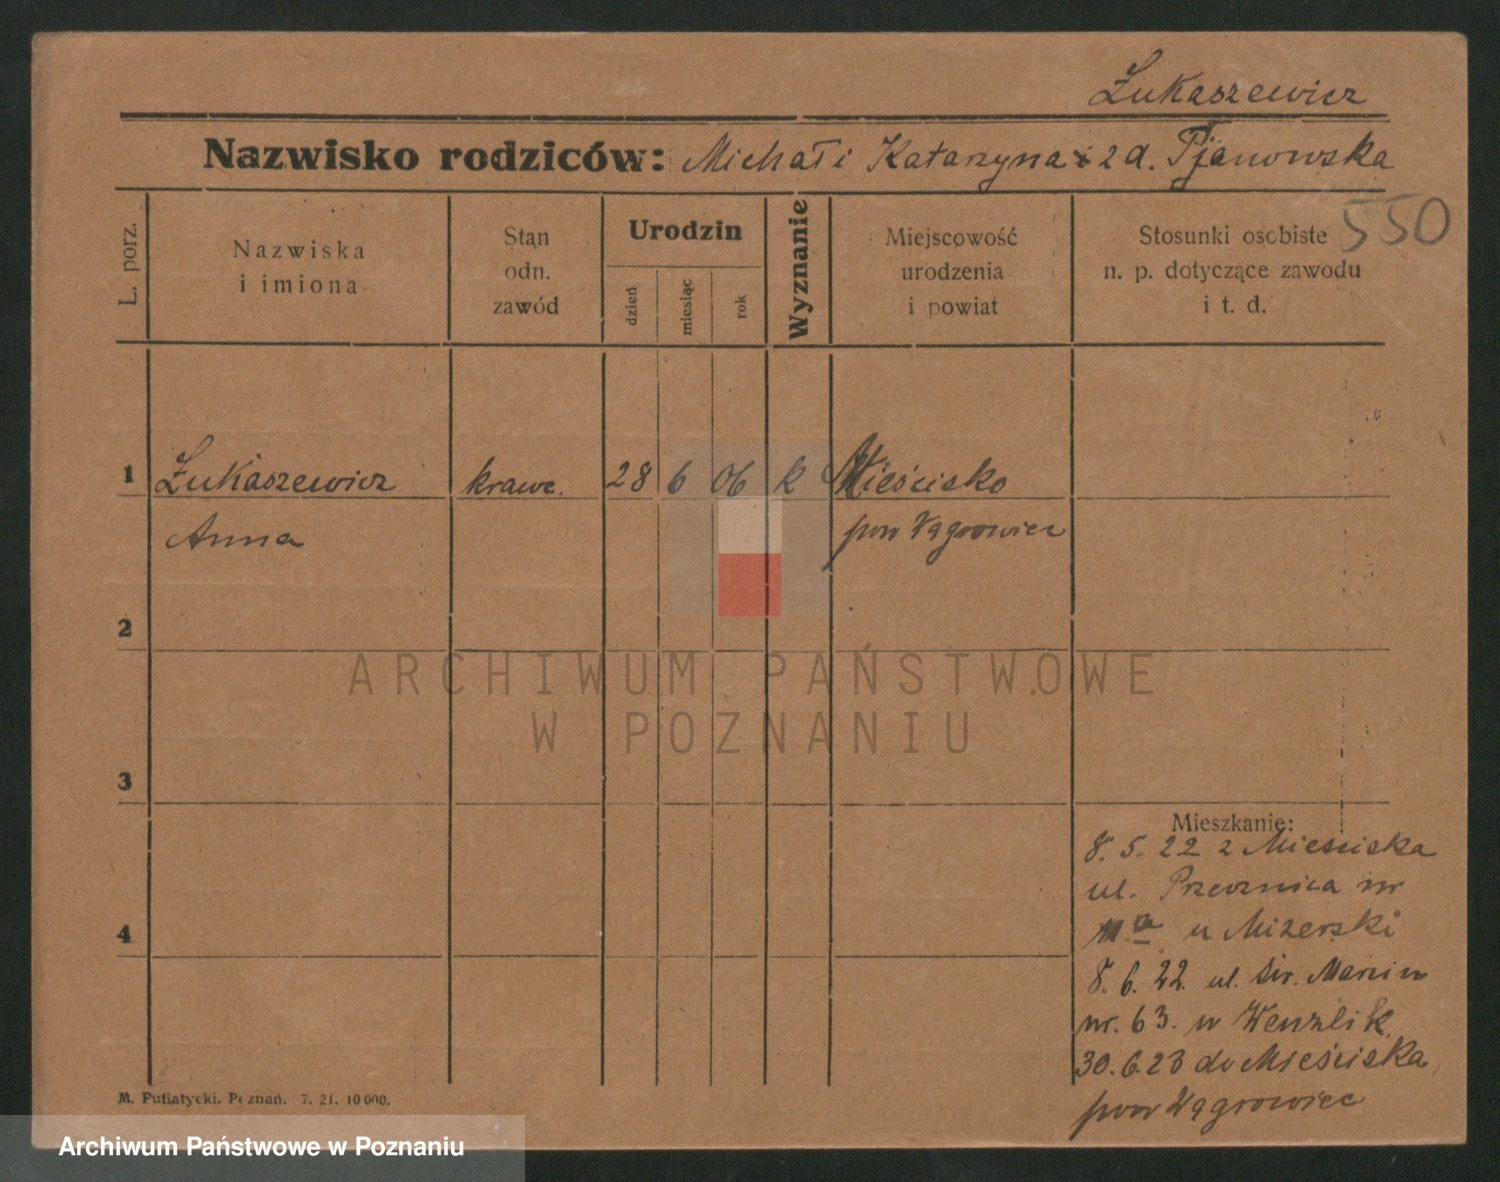 Łukaszewicz
Nazwisko rodziców: Michał i Katarzyna z d. Pjanowska
550
L. porz.
Nazwiska
i imiona
Stan
odn.
zawód
Urodzin
dzień
miesiąc
rok
Wyznanie
Miejscowość
urodzenia
i powiat
Stosunki osobiste
n. p. dotyczące zawodu
i t. d.
1 Łukaszewicz krawc. 28 6 06 k Mieścisko
Anna pow Wągrowiec
2
ARCHIWUM PAŃSTWOWE
W POZNANIU
3
4
Mieszkanie:
8. 5. 22 z Mieściska
ul. Przecznica nr
11a u Mizerski
8. 6. 22. ul. św. Marcin
nr. 63. u Wenzlik
30. 6 23 do Mieściska
pow Wągrowiec
M. Putiatycki, Poznań. 7. 21. 10000.
Archiwum Państwowe w Poznaniu